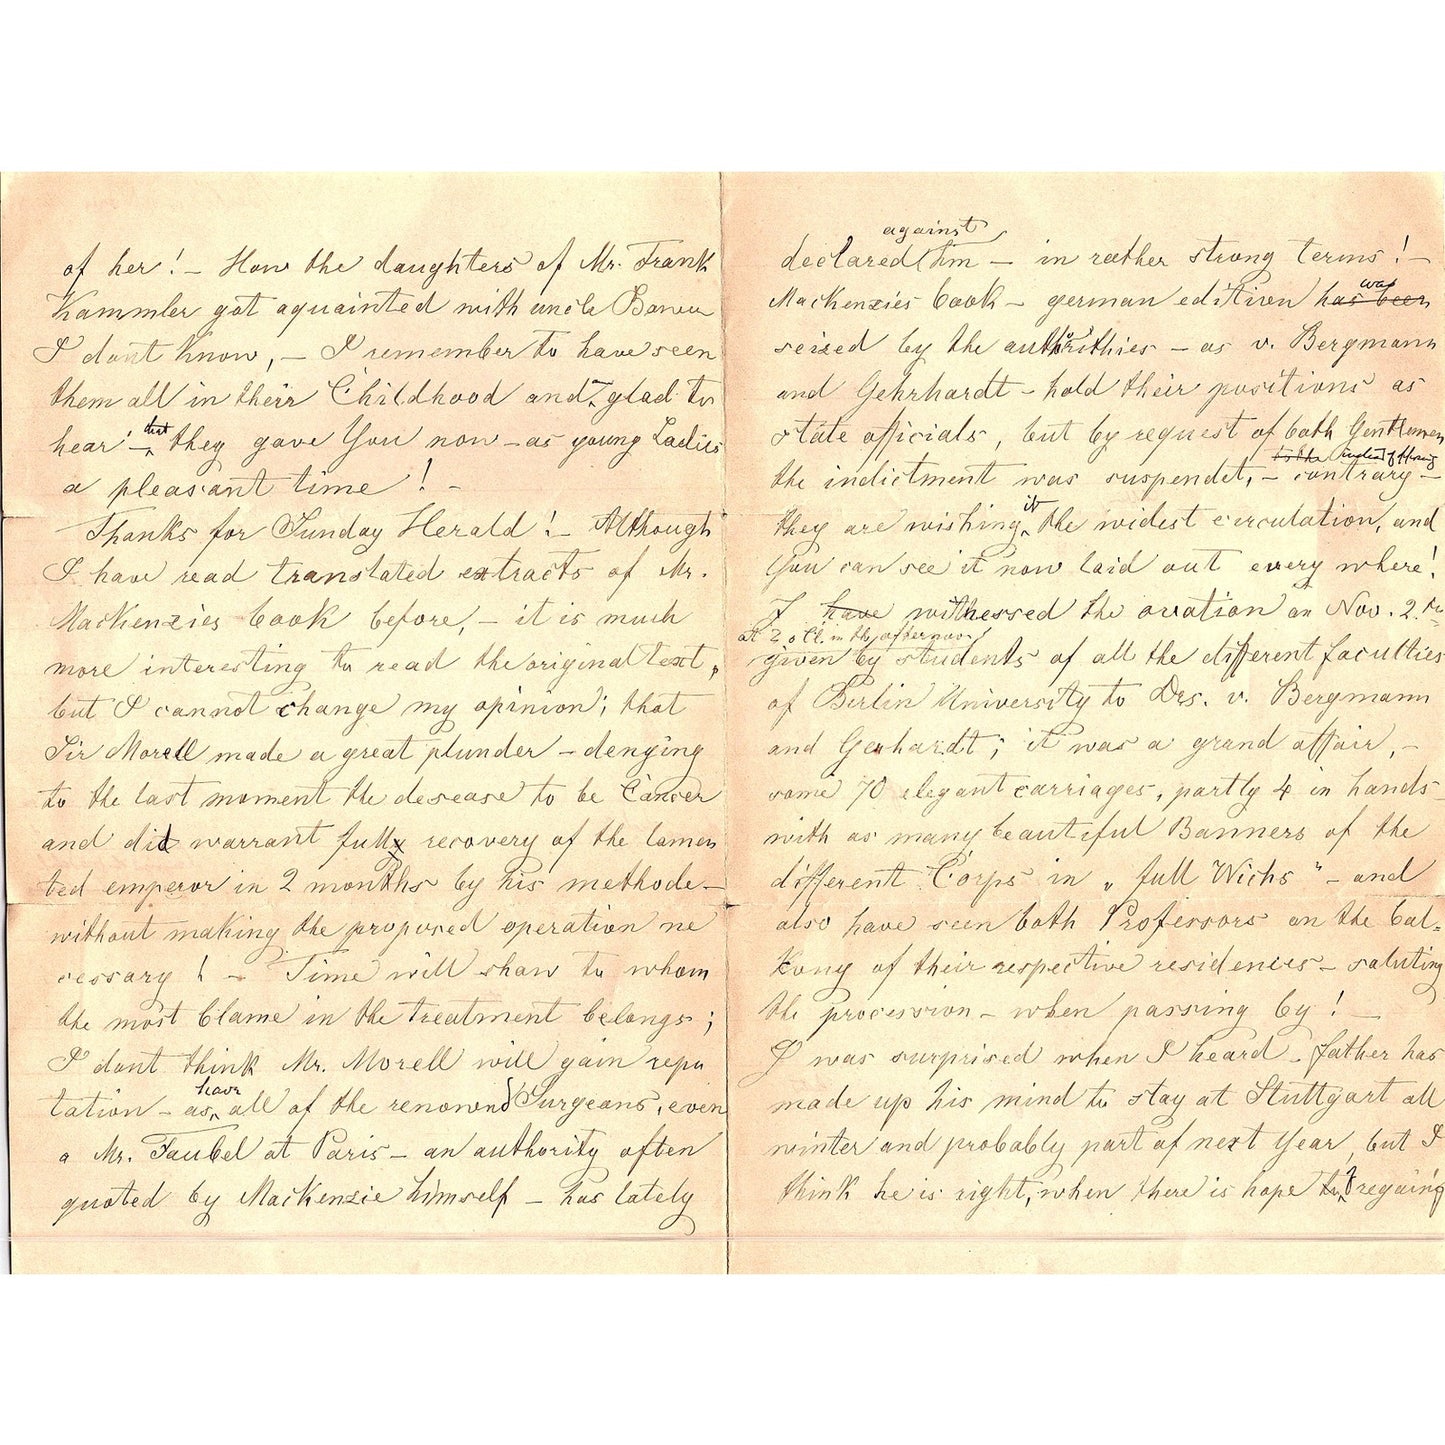 of her! – How the daughters of Mr. Frank
Kammler got aquainted with uncle
I dont Know, – I remember to have seen
them all in their Childhood and glad to
hear – that they gave You now – as young Ladies
a pleasant time! –
Thanks for Sunday Herald! – Although
I have read translated extracts of Mr.
MacKenzies book before, – it is much
more interesting to read the original text,
but I cannot change my opinion; that
Sir Morell made a great plunder – denying
to the last moment the desease to be Cancer
and did warrant full recovery of the lamen
ted emperor in 2 months by his methode –
without making the proposed operation ne
cessary! – Time will show to whom
the most blame in the treatment belongs;
I dont think Mr. Morell will gain repu
tation – as have all of the renownd Surgeons, even
a Mr. Faubel at Paris – an authority often
quoted by MacKenzie himself – has lately
against
declared him – in rather strong terms! –
MacKenzies book – german edition has been was
seized by the authorithies – as v. Bergmann
and Gehrhardt – hold their positions as
state officials, but by request of both Gentlemen
the indictment was suspendet, – contrary –
they are wishing it the widest circulation, and
You can see it now laid out every where!
I have witnessed the ovation on Nov. 2.
at 2 o Cl. in the afternoon
given by students of all the different faculties
of Berlin University to Drs. v. Bergmann
and Gerhardt; it was a grand affair, –
some 70 elegant carriages, partly 4 in hands –
with as many beautiful Banners of the
different Corps in „full Wichs" – and
also have seen both Professors on the bal=
kony of their respective residences – saluting
the procession – when passing by! –
I was surprised when I heard – father has
made up his mind to stay at Stuttgart all
winter and probably part of next Year, but I
think he is right, when there is hope regaing